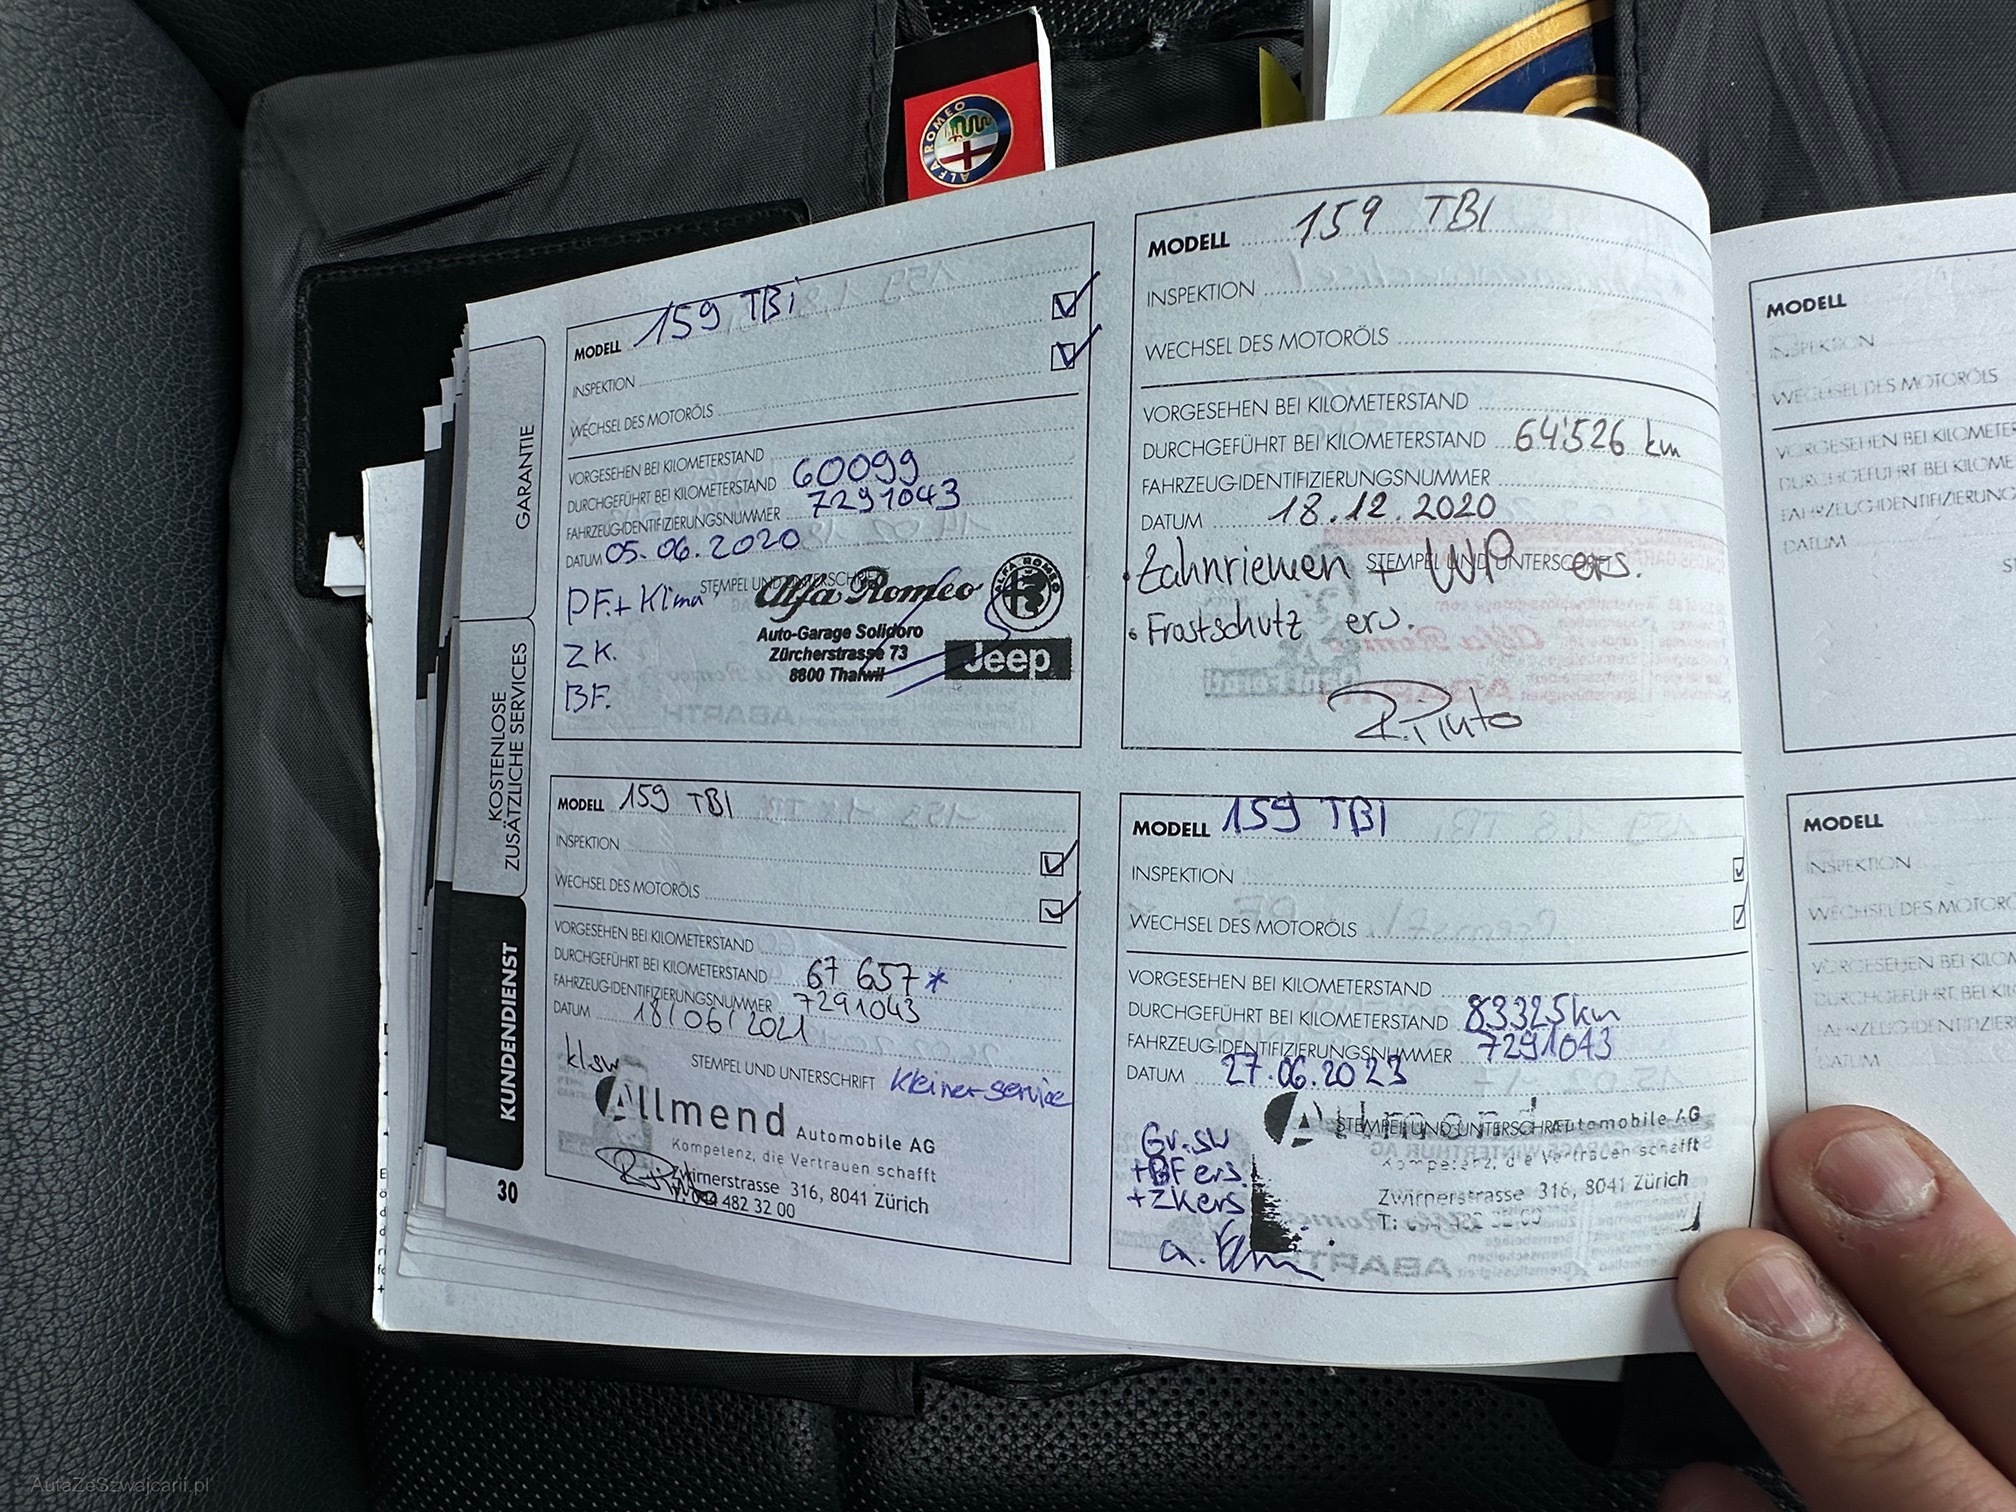 ALFA ROMEO
GARANTIE
KOSTENLOSE
ZUSÄTZLICHE SERVICES
KUNDENDIENST
30
MODELL 159 TBi
INSPEKTION
WECHSEL DES MOTORÖLS
VORGESEHEN BEI KILOMETERSTAND
DURCHGEFÜHRT BEI KILOMETERSTAND 60099
FAHRZEUG-IDENTIFIZIERUNGSNUMMER 7291043
DATUM 05.06.2020
STEMPEL UND UNTERSCHRIFT
PF.+ Klima
ZK.
BF.
Alfa Romeo
ALFA ROMEO
Auto-Garage Solidoro
Zürcherstrasse 73
8800 Thalwil
Jeep
MODELL 159 TBI
INSPEKTION
WECHSEL DES MOTORÖLS
VORGESEHEN BEI KILOMETERSTAND
DURCHGEFÜHRT BEI KILOMETERSTAND 64'526 km
FAHRZEUG-IDENTIFIZIERUNGSNUMMER
DATUM 18.12.2020
STEMPEL UND UNTERSCHRIFT
• Zahnriemen + WP ers.
• Frostschutz ern.
R.Pinto
MODELL 159 TBI
INSPEKTION
WECHSEL DES MOTORÖLS
VORGESEHEN BEI KILOMETERSTAND
DURCHGEFÜHRT BEI KILOMETERSTAND 67 657*
FAHRZEUG-IDENTIFIZIERUNGSNUMMER 7291043
DATUM 18/06/2021
STEMPEL UND UNTERSCHRIFT Kleiner service
kl.sw
Allmend Automobile AG
Kompetenz, die Vertrauen schafft
Zwirnerstrasse 316, 8041 Zürich
T: 044 482 32 00
MODELL 159 TBI
INSPEKTION
WECHSEL DES MOTORÖLS
VORGESEHEN BEI KILOMETERSTAND
DURCHGEFÜHRT BEI KILOMETERSTAND 83325km
FAHRZEUG-IDENTIFIZIERUNGSNUMMER 7291043
DATUM 27.06.2023
STEMPEL UND UNTERSCHRIFT
Gr.sw
+BF ers.
+ZKers
Allmend Automobile AG
Kompetenz, die Vertrauen schafft
Zwirnerstrasse 316, 8041 Zürich
T: 044 482 32 00
MODELL
INSPEKTION
WECHSEL DES MOTORÖLS
DATUM
MODELL
INSPEKTION
DATUM
AutaZeSzwajcarii.pl